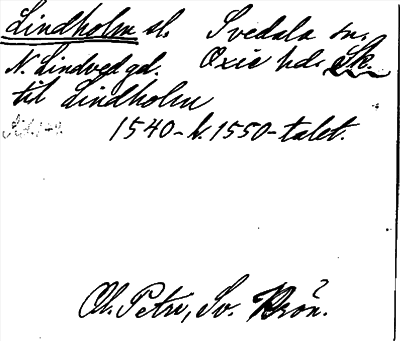 Lindholm sl. Svedala sn.
N. Lindved gd. Oxie hd. Sk.
til Lindholm
1540 - b. 1550-talet.
Ol. Petri, Sv. Krön.